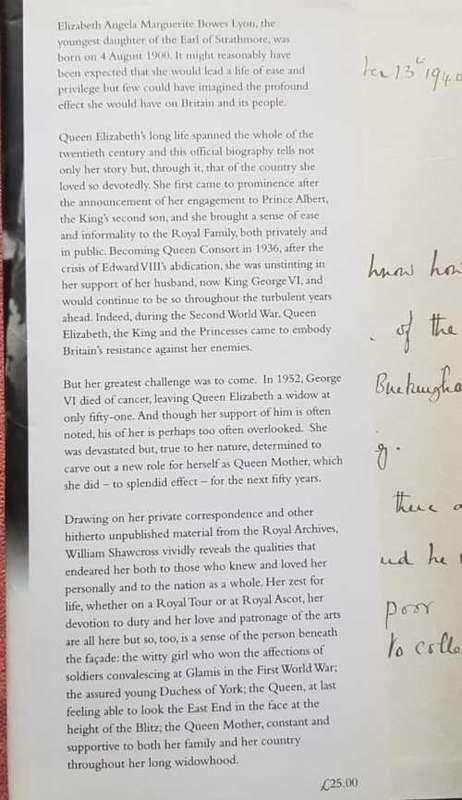 Elizabeth Angela Marguerite Bowes Lyon, the
youngest daughter of the Earl of Strathmore, was
born on 4 August 1900. It might reasonably have
been expected that she would lead a life of ease and
privilege but few could have imagined the profound
effect she would have on Britain and its people.
Queen Elizabeth's long life spanned the whole of the
twentieth century and this official biography tells not
only her story but, through it, that of the country she
loved so devotedly. She first came to prominence after
the announcement of her engagement to Prince Albert,
the King's second son, and she brought a sense of ease
and informality to the Royal Family, both privately and
in public. Becoming Queen Consort in 1936, after the
crisis of Edward VIII's abdication, she was unstinting in
her support of her husband, now King George VI, and
would continue to be so throughout the turbulent years
ahead. Indeed, during the Second World War, Queen
Elizabeth, the King and the Princesses came to embody
Britain's resistance against her enemies.
But her greatest challenge was to come. In 1952, George
VI died of cancer, leaving Queen Elizabeth a widow at
only fifty-one. And though her support of him is often
noted, his of her is perhaps too often overlooked. She
was devastated but, true to her nature, determined to
carve out a new role for herself as Queen Mother, which
she did – to splendid effect – for the next fifty years.
Drawing on her private correspondence and other
hitherto unpublished material from the Royal Archives,
William Shawcross vividly reveals the qualities that
endeared her both to those who knew and loved her
personally and to the nation as a whole. Her zest for
life, whether on a Royal Tour or at Royal Ascot, her
devotion to duty and her love and patronage of the arts
are all here but so, too, is a sense of the person beneath
the façade: the witty girl who won the affections of
soldiers convalescing at Glamis in the First World War;
the assured young Duchess of York; the Queen, at last
feeling able to look the East End in the face at the
height of the Blitz; the Queen Mother, constant and
supportive to both her family and her country
throughout her long widowhood.
£25.00
ber 13th 1940
know how
. of the
Buckingha
g.
there a
nd he
poor
to colle